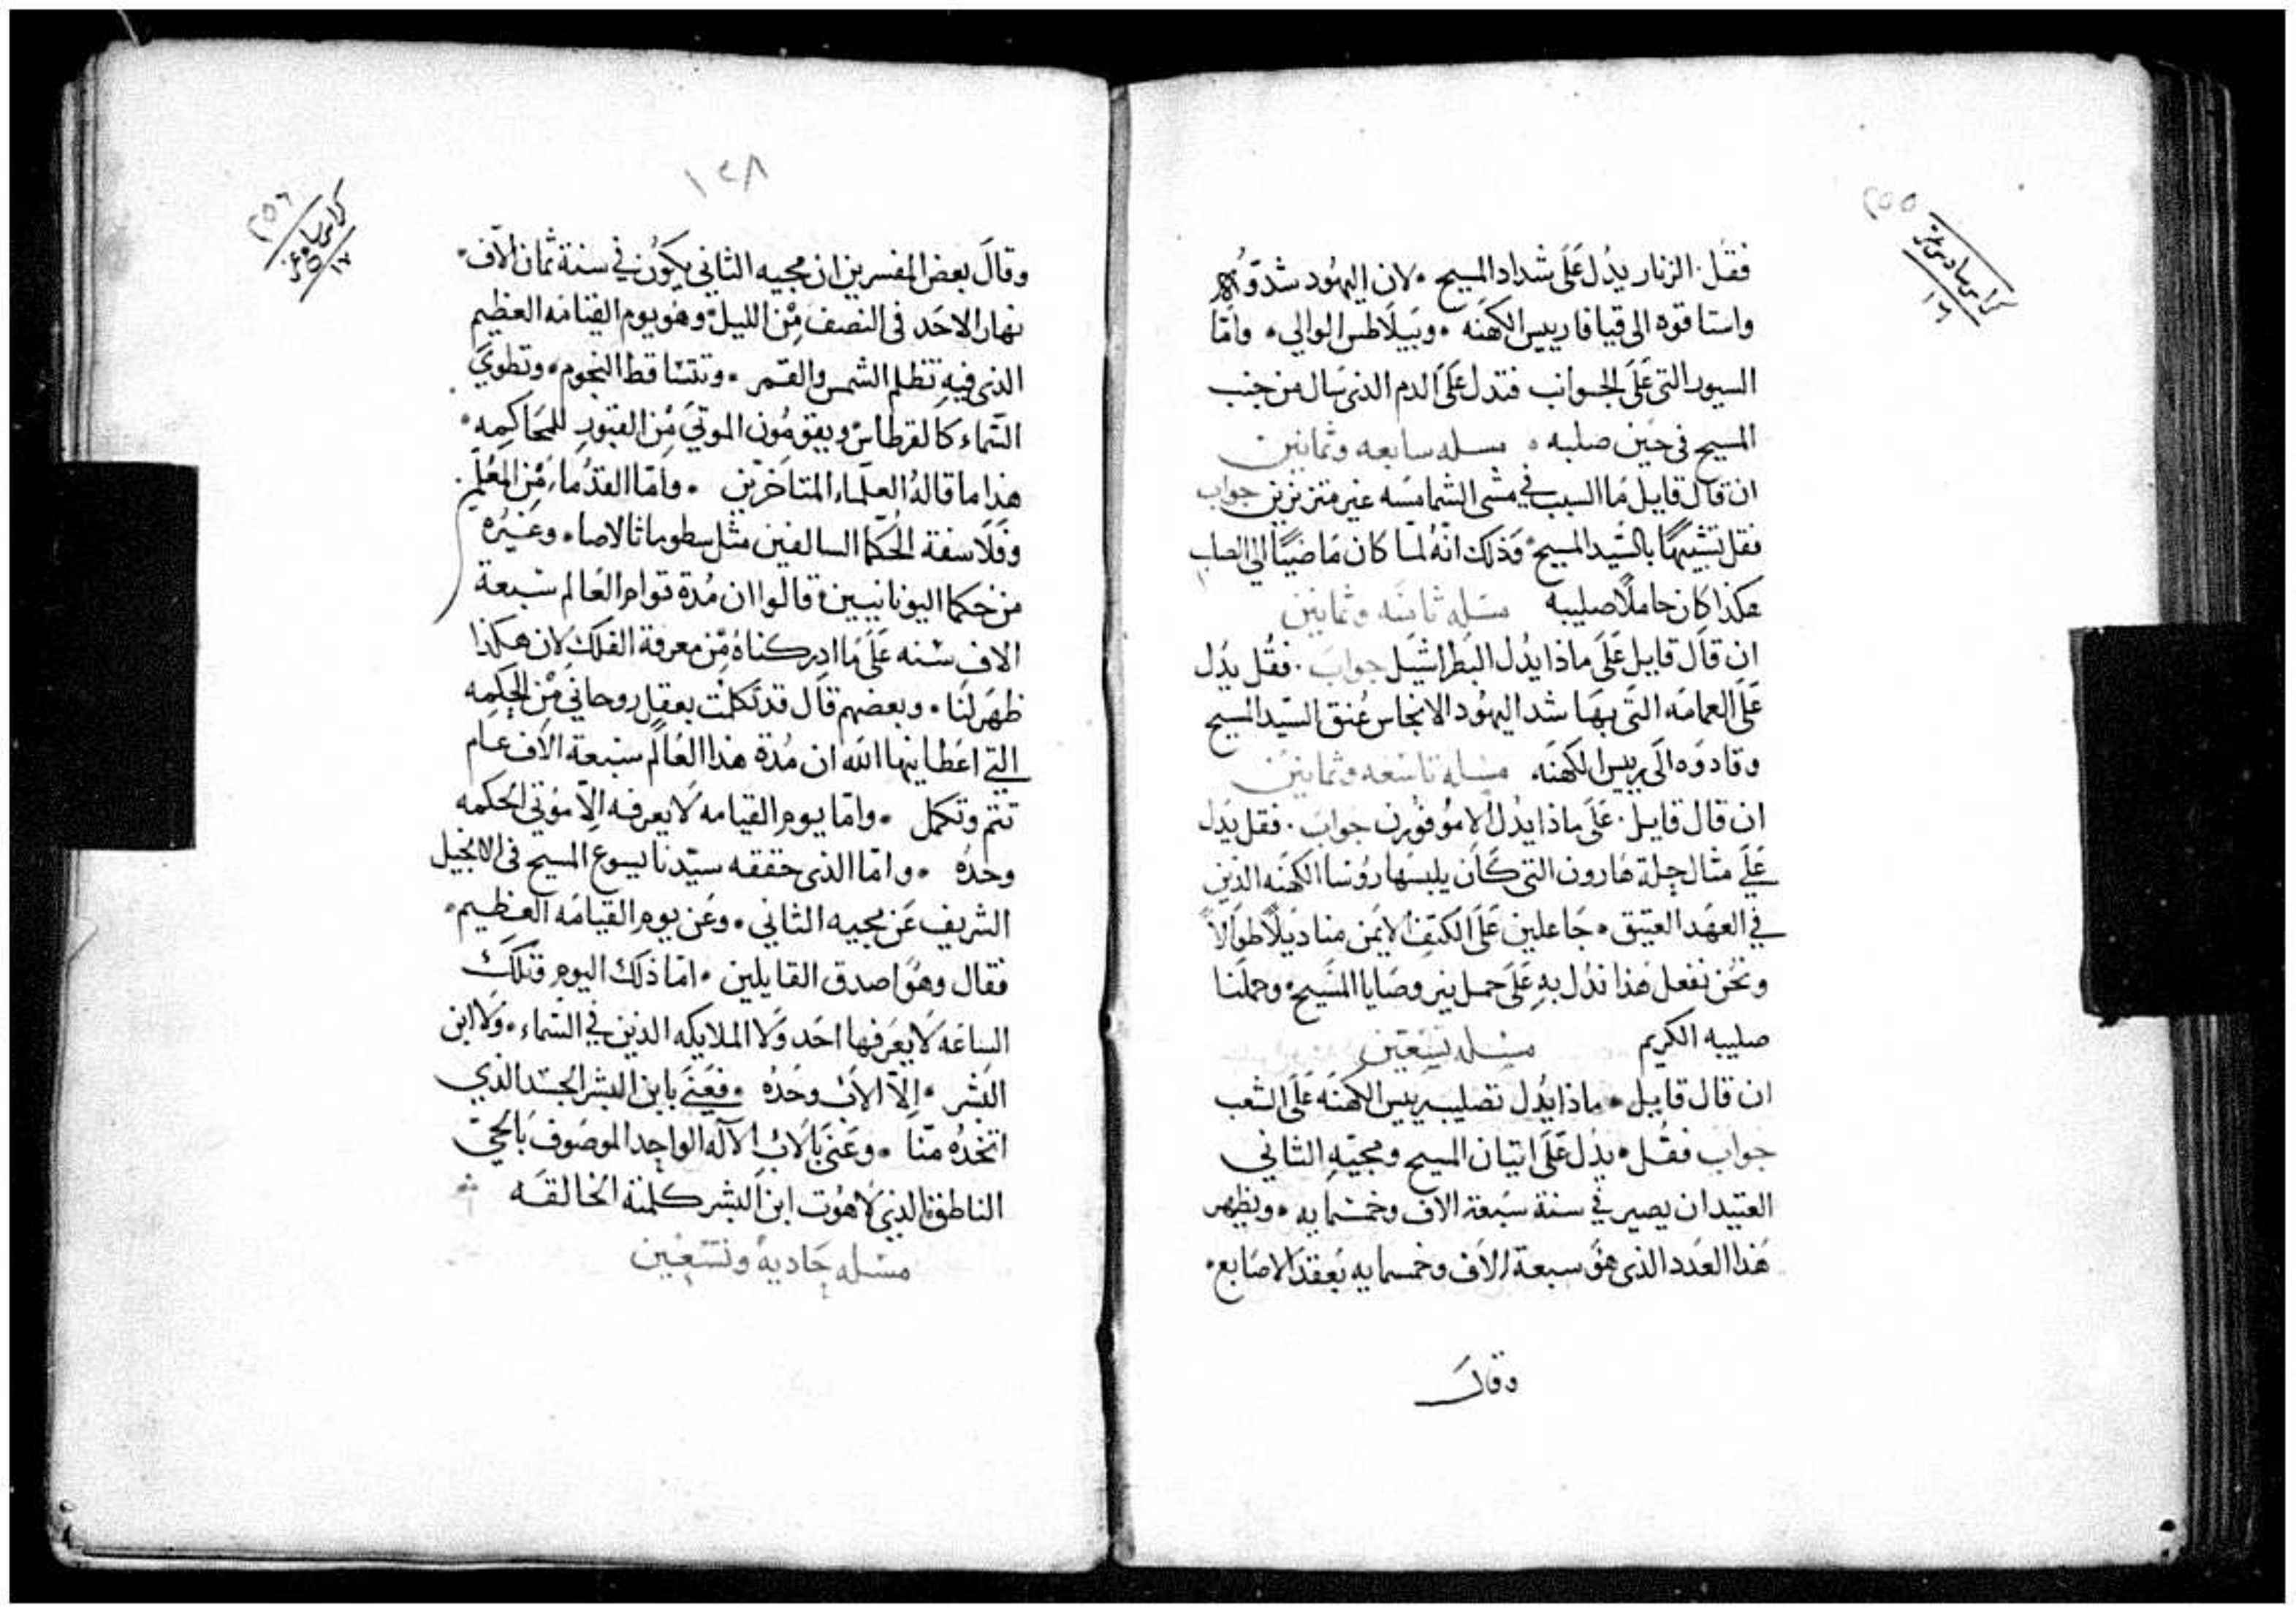 ٢٥٥
كراس سادس عشر
١٦
فقل. الزنار يدُل عَلَى شداد المسيح • لان اليهُود شدّوُه
واستاقوه الى قيافا رييس الكهنَه • وبَيلَاطس الوالي • وامّا
السيور التى عَلَى الجوانب فتدل عَلَى الدم الذى سَال من جنب
المسيح في حَين صلبه • مسله سابعه وثمانين
ان قال قايل مَا السبب في مشى الشمامسَه غير متزنرين جواب
فقل تشبيهًا بالسَّيد المسيح • وَذلك انّهُ لمّا كان مَاضيًا الي الصلب
هكذا كان حاملًا صليبه مسَله ثامنَه وثمانين
ان قال قايل عَلَى ماذا يدُل البَطراشيل جوابَ . فقُل يدُل
عَلَى العمامَه التَى بهَا شد اليهُود الانجاس عُنق السَيد المسيح
وقادوَه الَى رييس الكهنَه مسَله تاسَعه وثمانين
ان قال قايل . عَلَى ماذا يدُل الاموُفوُرن جوابَ . فقل يدَل
عَلَى مثال حِلة هَارون التى كَان يلبسَها روُسَا الكهنَه الذين
في العهَد العتيق • جَاعلين عَلَى الكتِف الايمَن منا ديَلًا طوَالًا
ونحُن نفعل هَذا ندُل بهِ عَلَى حمل نير وصَايا المسَيح • وحملَنا
صليبه الكريم مسَله تسَعَين
ان قال قايل • ماذا يدُل تصَليب رييس الكهنَه عَلَى الشعب
جواب فقُل • يدُل عَلَى اتيَان المسيح ومجَيّهِ الثاني
العتيد ان يصير في سنة سَبعَة الاف وخمسَمايه • ويظهر
هَذا العَدد الذى هوَ سبعة الاف وخمسمايه بَعقد الاصَابع •
وقال
١٢٨
٢٥٦
كراس سابع عشر
١٧
وقالَ بعض المفسرين ان مجيه الثاني يكوُن في سنة ثمان الآف •
نهار الاحَد فى النصف مِن الليل • وهوَ يوم القيامَه العظيم
الذى فيهِ تظلم الشمس والقمر • وتتسَاقط النجوم • وتطوي
السَّماء كالقرطاس • ويقوموُن الموتَي مِن القبور للمحَاكمه •
هذا ما قالهُ العلمَاء المتاخرين • وامّا القدُماء مِن المعُلّمين
وفَلَاسفة الحُكمَا السالفين مثل سطوماثالاصا • وغَيرُه
من حكما اليونانيين • قالوا ان مُدة قوام العَالم سَبعة
الاف سَنه عَلَى مَا ادركناهُ مِن معرفة الفلك لان هكذا
ظهَر لَنا • وبعضهم قال قد تكلمَت بعقل روحاني مِن الحِكمه
التي اعَطانيها اللَه ان مُدة هذا العَالم سَبعة الاف عام
تتم وتكمل • وامّا يوم القيامه لَا يعرفه الّا مؤتي الحكمه
وحدُه • وامّا الذى حققه سيّدنا يسوع المسيح فى الانجيل
الشريف عَن مجيه الثاني • وعَن يوم القيامَه العظيم •
فقال وهوَ اصدق القايلين • امّا ذلك اليوم وتلك
السَاعَه لَا يعَرفها احَد وَلَا الملايكه الذين في السَماء • ولا ابن
البَشر • الّا الاب وحَدُه • فعَنَى بابن البشر الجسَد الذي
اتخذهُ منّا • وعَنَى بالاب الالَه الواحِد الموصَوف بالحيّ
الناطق • الذي لَاهوُت ابن البشر كلمته الخالقَه
مسَله حَاديةً وتسَعين